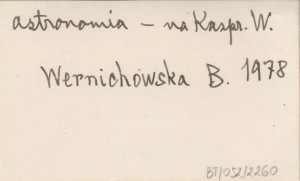 astronomia – na Kaspr. W.
Wernichowska B. 1978
BT/052/2260